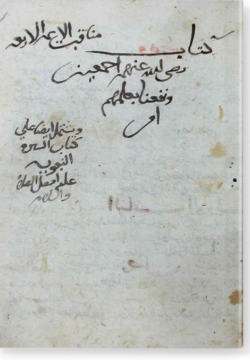 كتاب
مناقب الائمة الاربعة
رضي الله عنهم اجمعين
ونفعنا بعلمهم
امين
ويشتمل ايضا علي
كتاب السيرة
النبوية
علي افضل الصلاة
والسلام